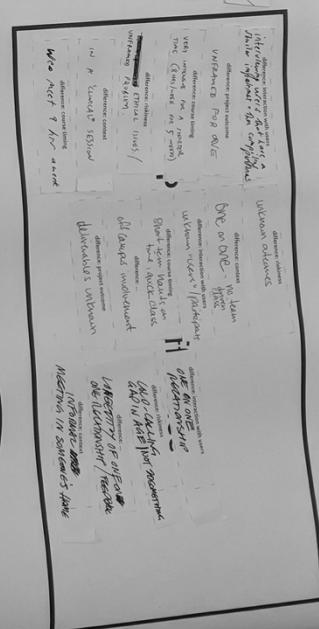 difference: interaction with users
interviewing users that have a
similar
difference: project outcome
UNFRAMED POP ONE
difference: course timing
VERY INTENSE IN SHORTER
TIME
difference: riskiness
ETHICAL ISSUES/
UNFRAMED PROBLEM
difference: context
IN A "CLINICAL" SESSION
difference: course timing
WE'D MEET 9 HR A WEEK
difference: riskiness
unknown outcomes
difference: context
One on one - no team
driven
class
difference: interaction with users
unknown "users"/participants
difference: course timing
Short term hands on
time, quick class
off campus involvement
difference: project outcome
deliverable = unknown
difference: interaction with users
ONE ON ONE
RELATIONSHIP
difference: riskiness
COLD-CALLING
GAP IN AGE/NOT KNOWING
difference:
LONGEVITY OF ONE ON
ONE RELATIONSHIP/
difference: context
INFORMAL
MEETING IN SOMEONE'S HOME